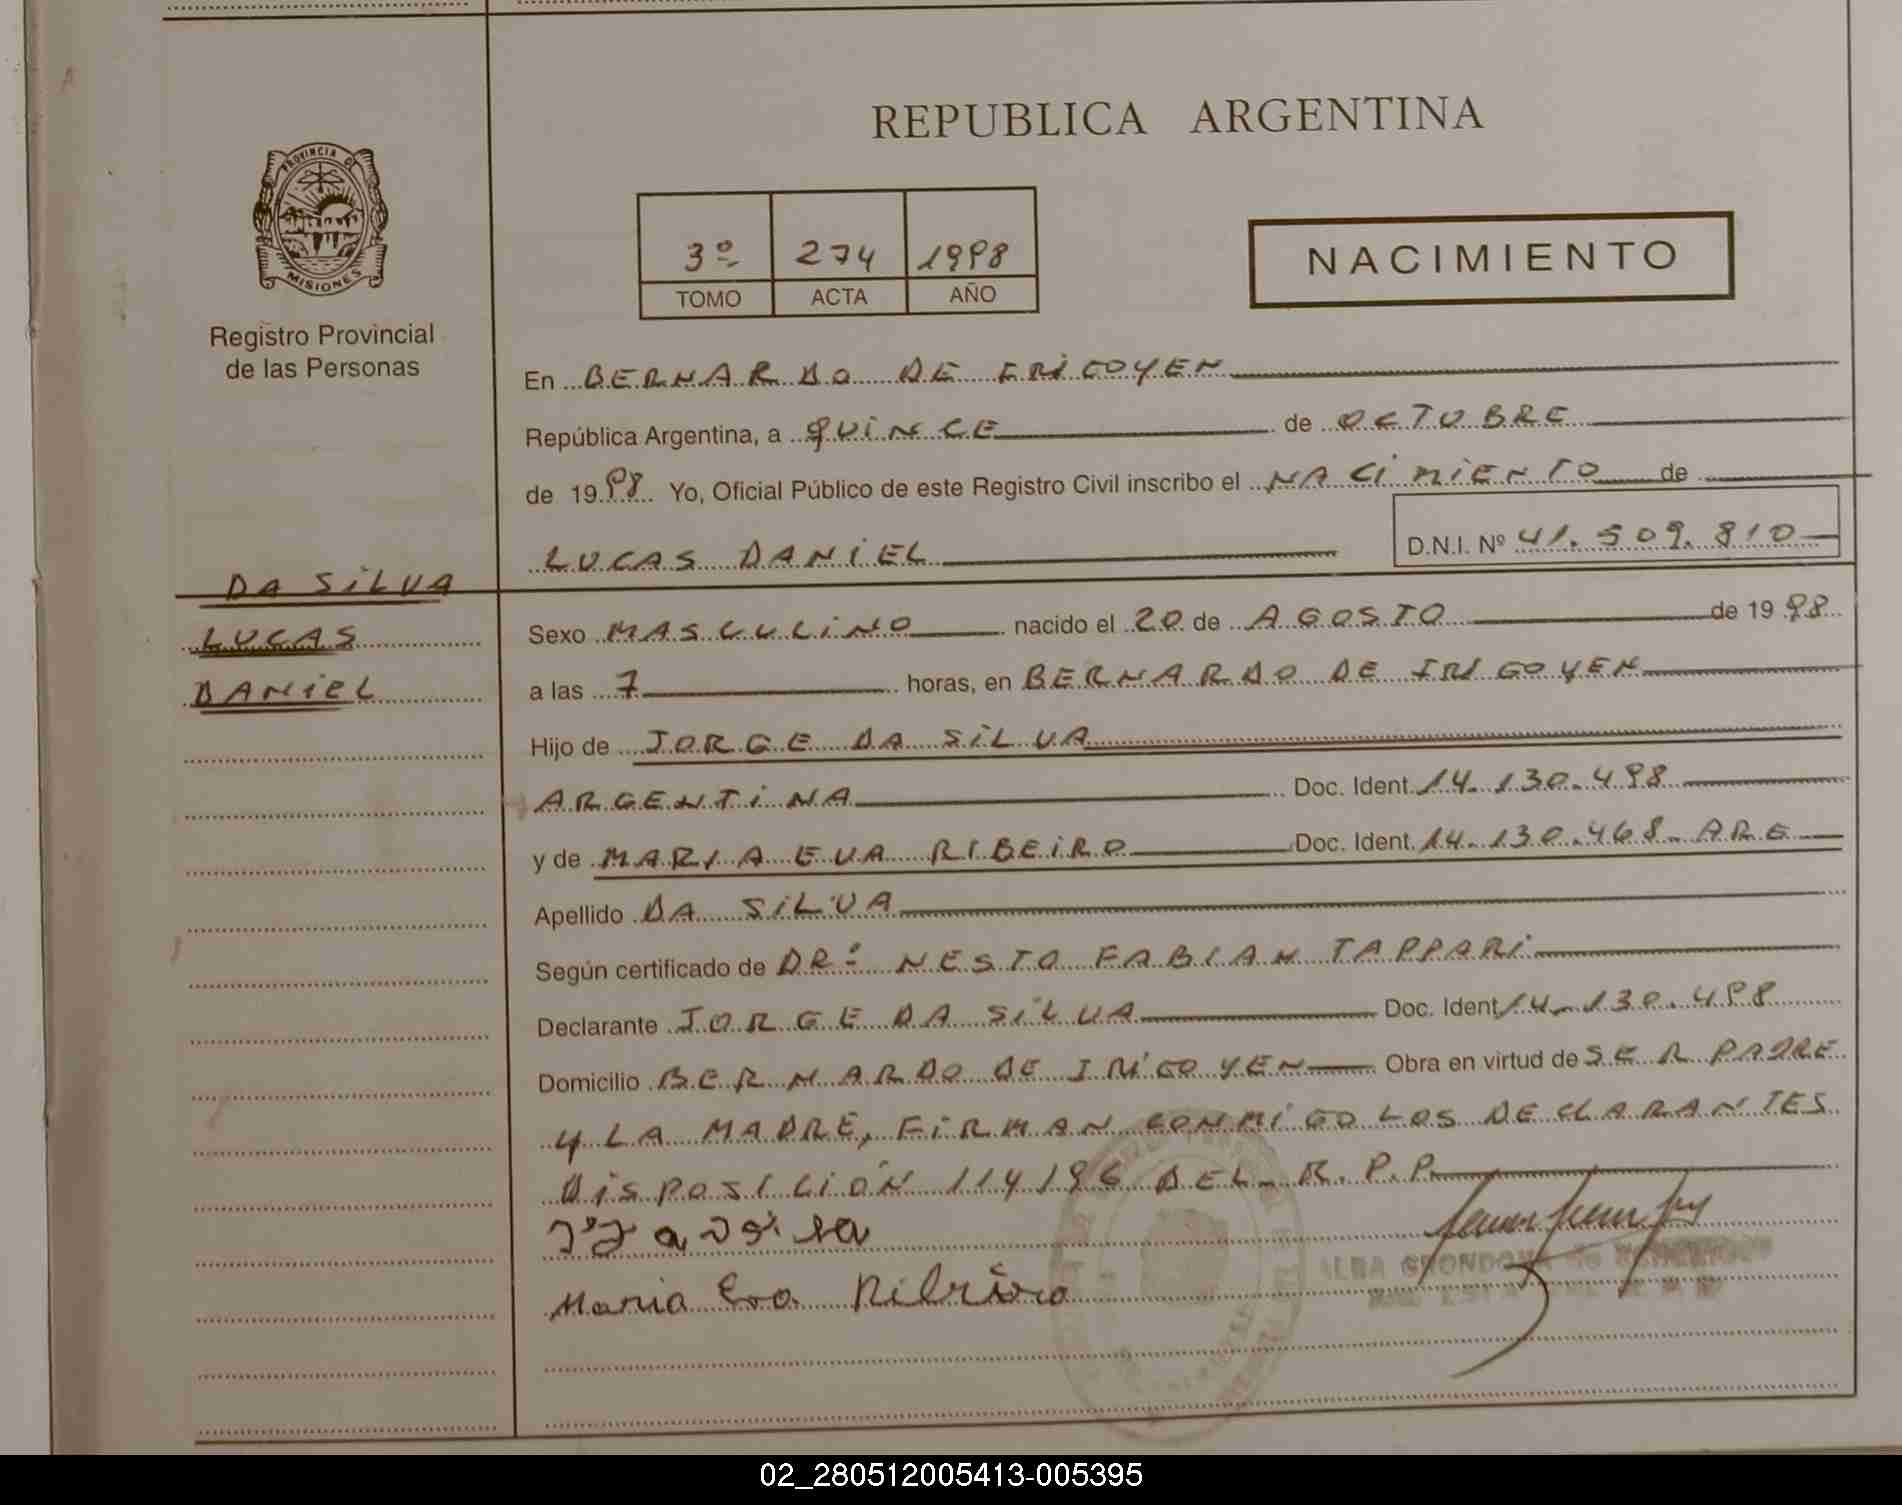 REPUBLICA ARGENTINA
PROVINCIA DE
MISIONES
Registro Provincial
de las Personas
3º 274 1998
TOMO ACTA AÑO
NACIMIENTO
En BERNARDO DE IRIGOYEN
República Argentina, a QUINCE de OCTUBRE
de 1998 Yo, Oficial Público de este Registro Civil inscribo el NACIMIENTO de
LUCAS DANIEL D.N.I. Nº 41.509.810
DA SILVA
LUCAS
DANIEL
Sexo MASCULINO nacido el 20 de AGOSTO de 1998
a las 7 horas, en BERNARDO DE IRIGOYEN
Hijo de JORGE DA SILVA
ARGENTINA Doc. Ident. 14.130.498
y de MARIA EVA RIBEIRO Doc. Ident. 14.130.468- ARG
Apellido DA SILVA
Según certificado de DR: NESTO FABIAN TAPPARI
Declarante JORGE DA SILVA Doc. Ident 14.130.498
Domicilio BERNARDO DE IRIGOYEN Obra en virtud de SER PADRE
Y LA MADRE, FIRMAN CONMIGO LOS DECLARANTES
DISPOSICIÓN 114/96 DEL R.P.P.
Maria Eva Ribeiro
ALBA GRONDONA de
02_280512005413-005395